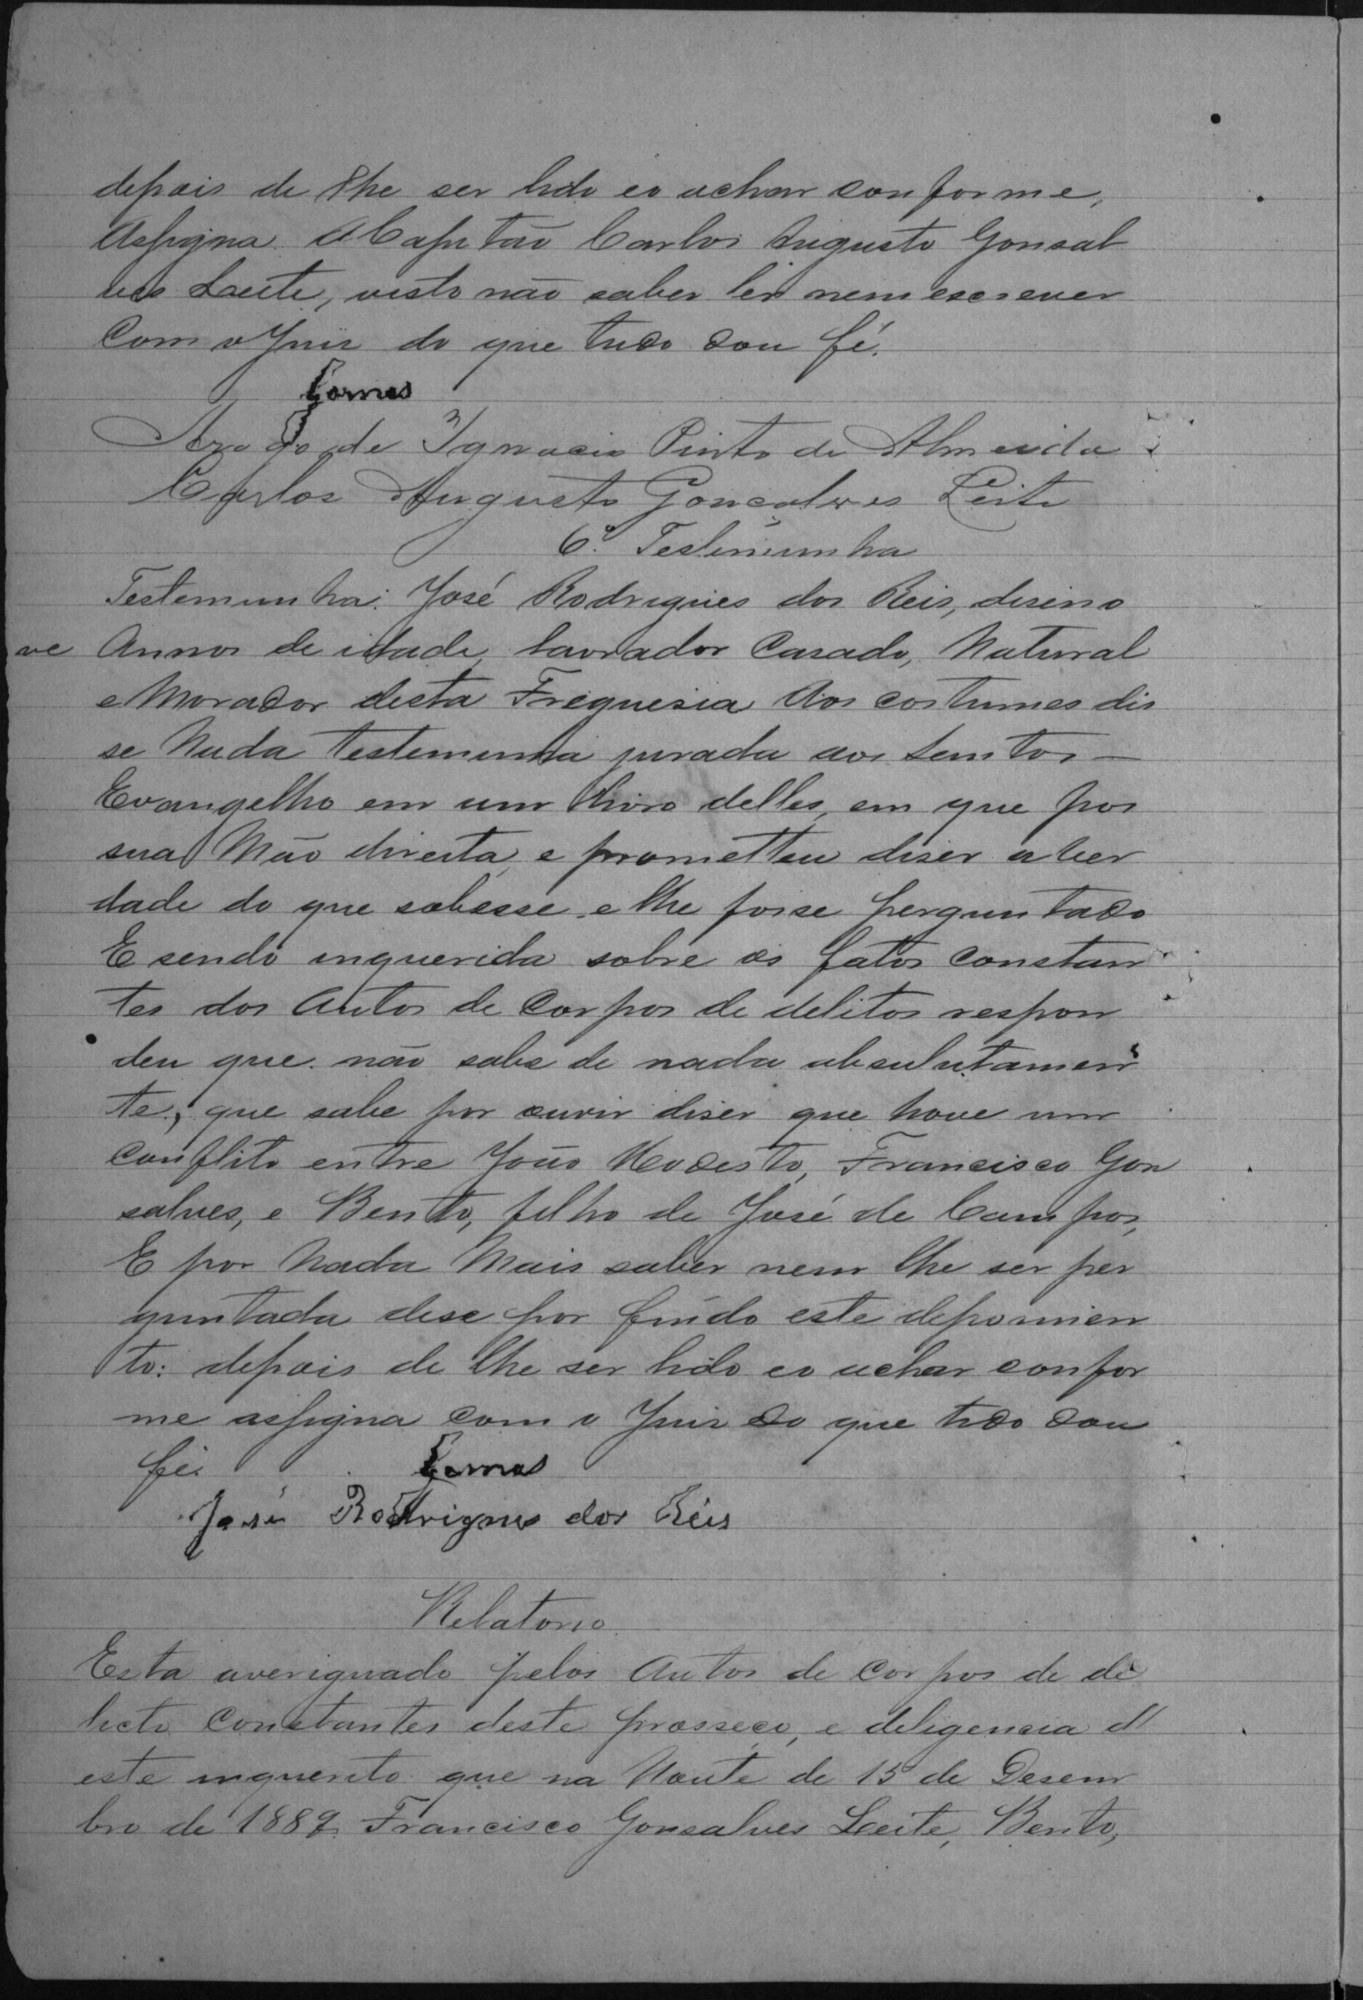 depois de lhe ser lido eo achar conforme,
Assigna o Capitão Carlos Augusto Gonsal
ves Leite, visto não saber ler nem escrever
Com o Juis do que tudo dou fé.
Gomes
Arogo de Ignacio Pinto de Almeida
Carlos Augusto Goncalves Leite
6ª Testemunha
Testemunha: José Rodrigues dos Reis, diseno
ve Annos de idade, lavrador Casado, Natural
e Morador desta Freguesia Aos costumes dis
se Nada testemunha jurada aos Santos —
Evangelho em um livro delles, em que pos
sua Mão direita, e prometteu diser a ver
dade do que sobesse e lhe fosse perguntado
E sendo inquerida sobre os fatos constan
tes dos Autos de Corpos de delitos respon
deu que não sabe de nada absulutamen
te, que sabe por ouvir diser que hove um
Conflito entre João Modesto, Francisco Gon
salves, e Bento, filho de José de Campos,
E por Nada Mais saber nem lhe ser per
guntada dise por findo este depoimen
to: depois de lhe ser lido eo achar confor
me assigna com o Juis do que tudo dou
fé.
Gomes
José Rodrigues dos Réis
Relatorio
Esta averiguado pelos Autos de Corpos de de
licto Constantes deste prosseço, e deligencia d
este inquerito que na Noute de 15 de Desem
bro de 1889 Francisco Gonsalves Leite, Bento,